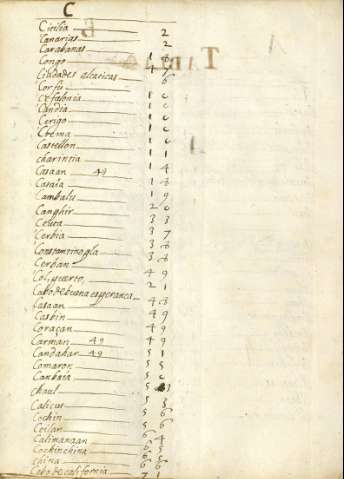 C
Cicilia 2
Canarias 2
Carabanas
Congo 4
Ciudades alcaticas 6
Corfu 1 0
Cefalonia 1 0
Candia 1 0
Cerigo 1 0
Crema 1 0
Castellon 1 1
charintia 1 4
Casaan 49 1 8
Casaia 1 8
Cambalu 1 9
Canghir 2 0
Ceuta 3 3
Cerbia 3 7
Constantinopla 3 8
Cerdan 3 8
Col, puerto 4 9
Cabo de buena esperanca 2
Casaan 4 8
Casbin 4 9
Coraçan 4 9
Carman 49 4 9
Candahar 49 5 1
Comaron 5 1
Canbaia 5
chaul 5
Calicut 5
Cochin 5 6
Ceilan 5 6
Calimangan 6 4
Cochinchina 6
china 6
Cabo de california 7 1
TABLA